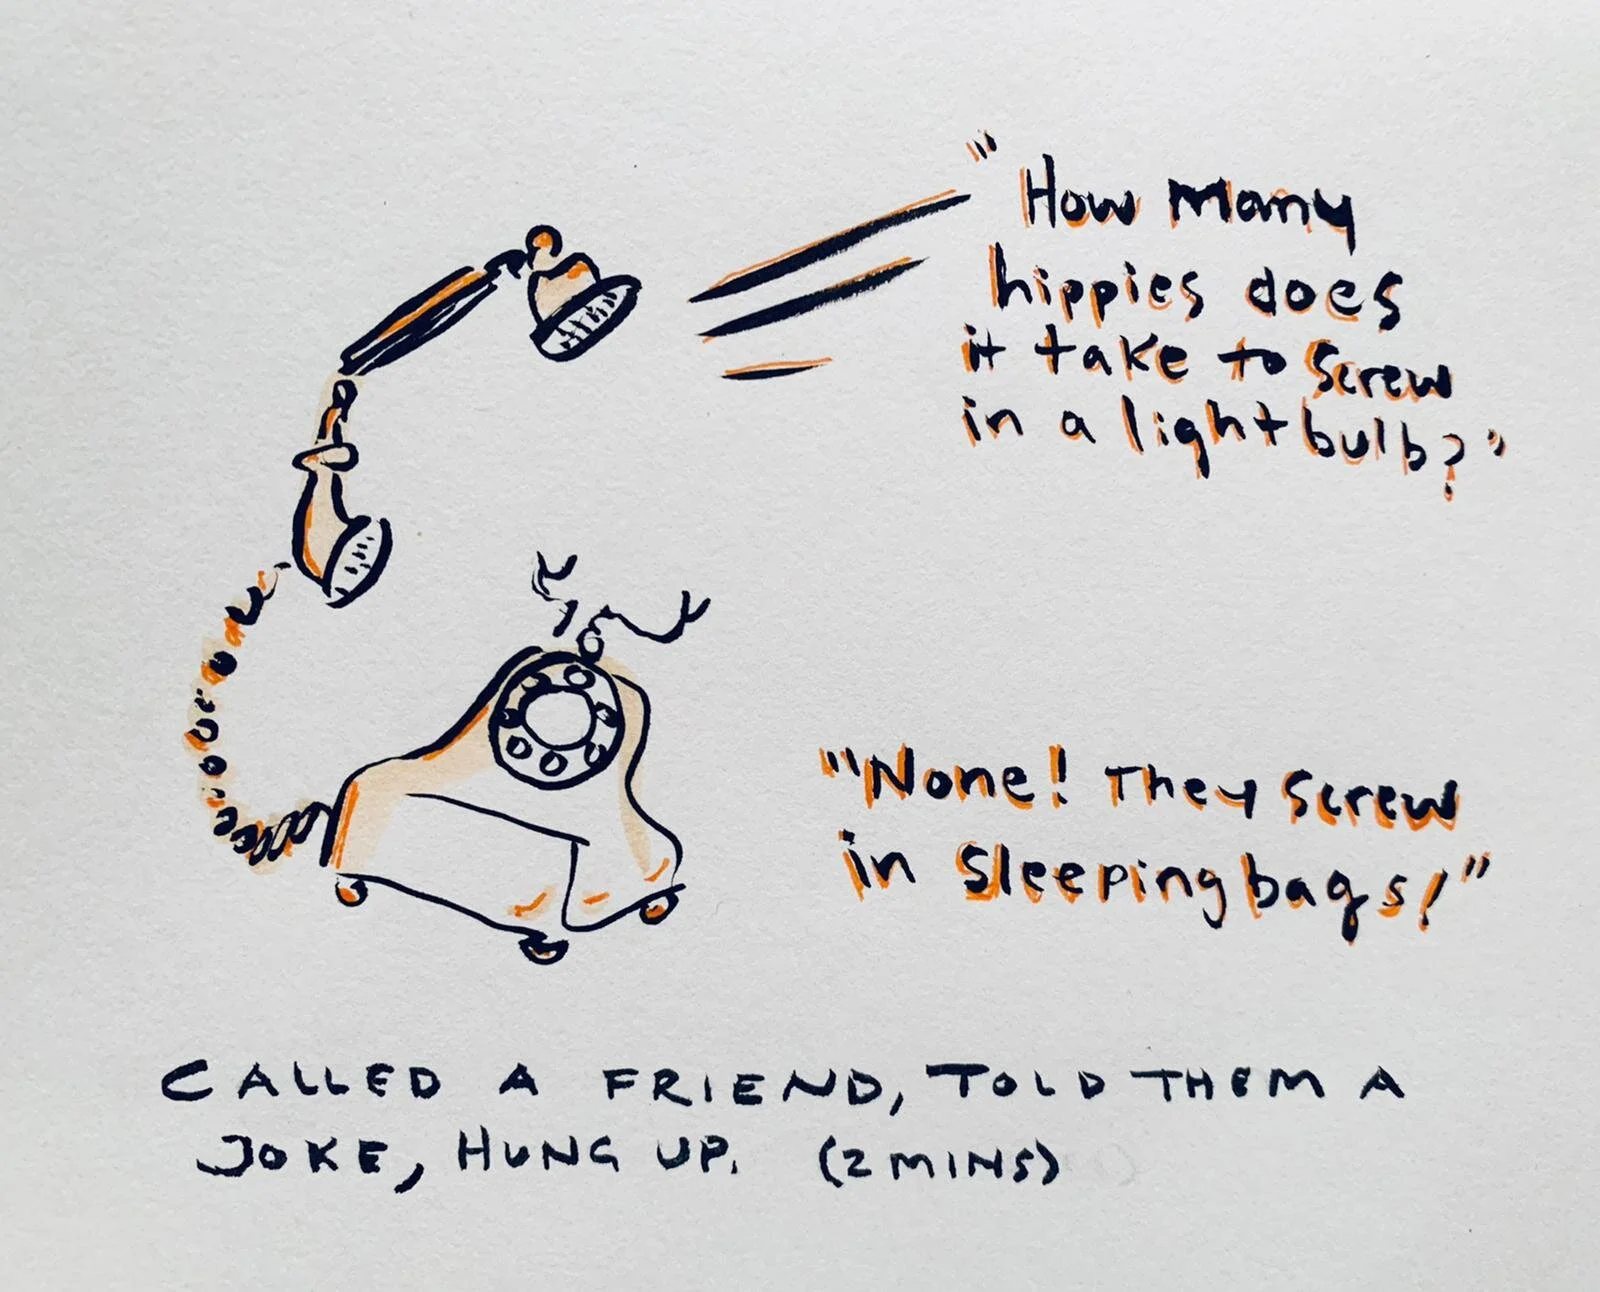 "How Many
hippies does
it take to screw
in a light bulb?"
"None! They screw
in sleeping bags!"
CALLED A FRIEND, TOLD THEM A
JOKE, HUNG UP. (2 MINS)